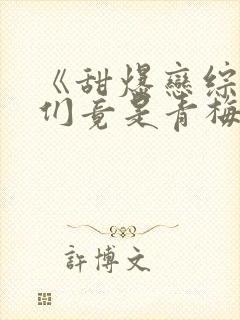 《甜爆戀綜
们竟是青梅
許博文